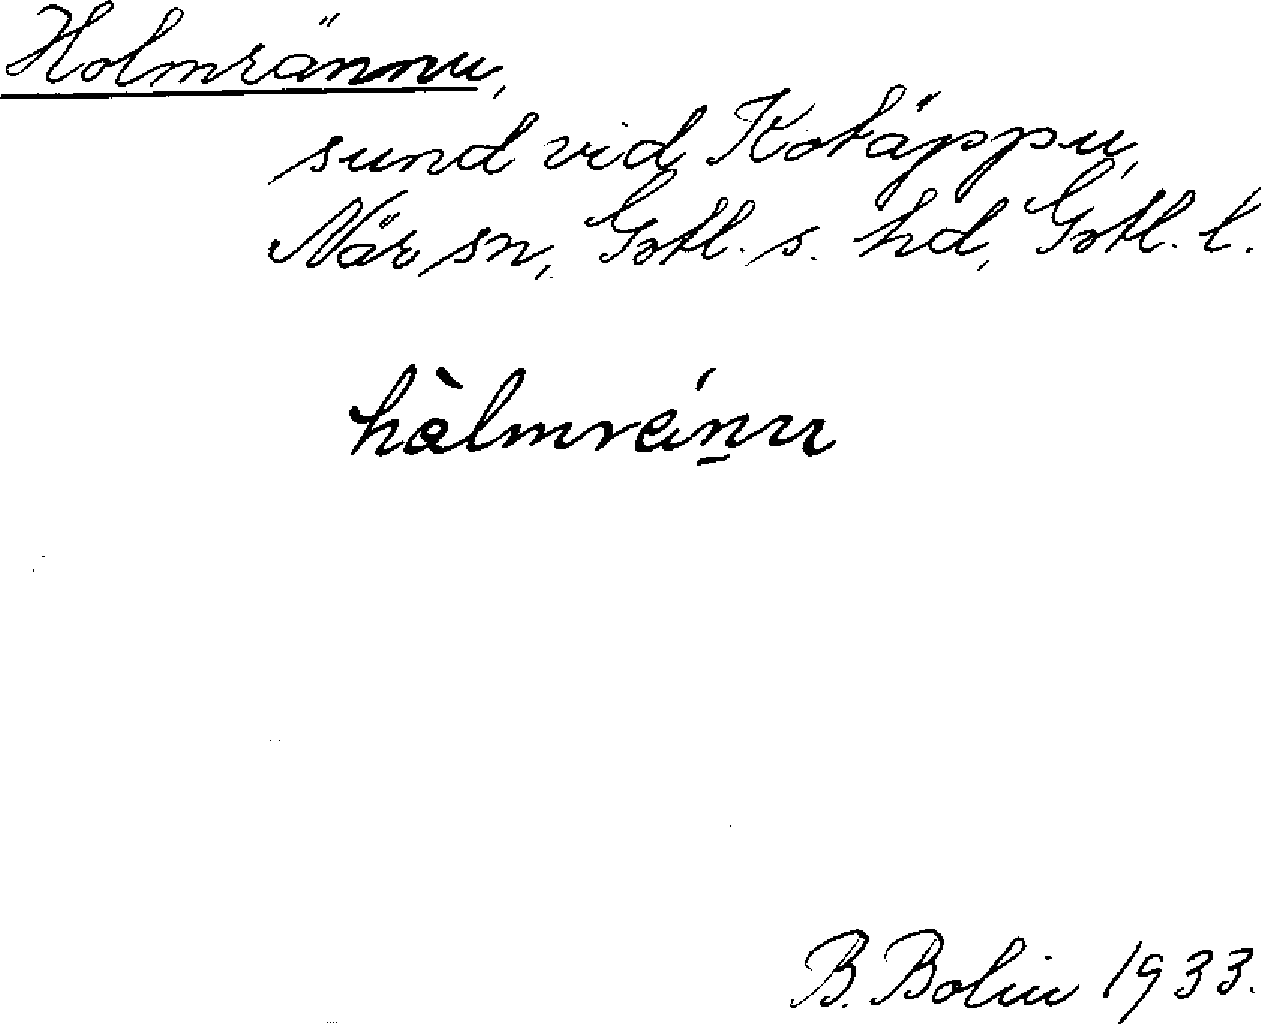 Holmrännu,
sund vid Kotäppu,
När sn, Gotl. s. hd, Gotl. l.
hàlmränu
B. Bolin 1933.